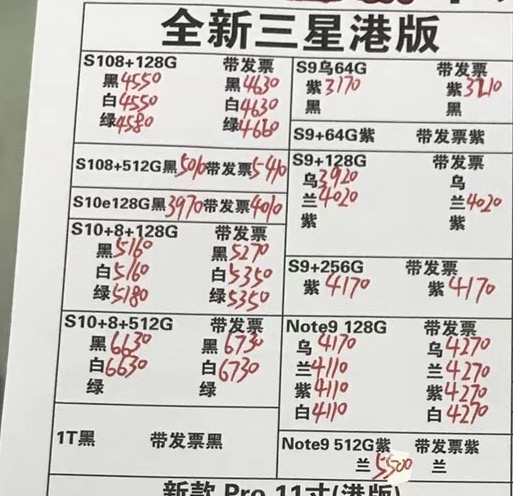 全新三星港版
S108+128G 带发票
黑4550 黑4630
白4550 白4630
绿4580 绿4660
S108+512G黑5010带发票5410
S10e128G黑3970带发票4010
S10+8+128G 带发票
黑5160 黑5270
白5160 白5350
绿5180 绿5350
S10+8+512G 带发票
黑6630 黑6730
白6630 白6730
绿 绿
1T黑 带发票黑
S9乌64G 带发票
紫3170 紫3210
黑 黑
S9+64G紫 带发票紫
S9+128G 带发票
乌3920 乌
兰4020 兰4020
紫 紫
S9+256G 带发票
紫4170 紫4170
Note9 128G 带发票
乌4170 乌4270
兰4110 兰4270
紫4110 紫4270
白4110 白4270
Note9 512G紫 带发票紫
兰5500 兰
新款 Pro 11寸(港版)